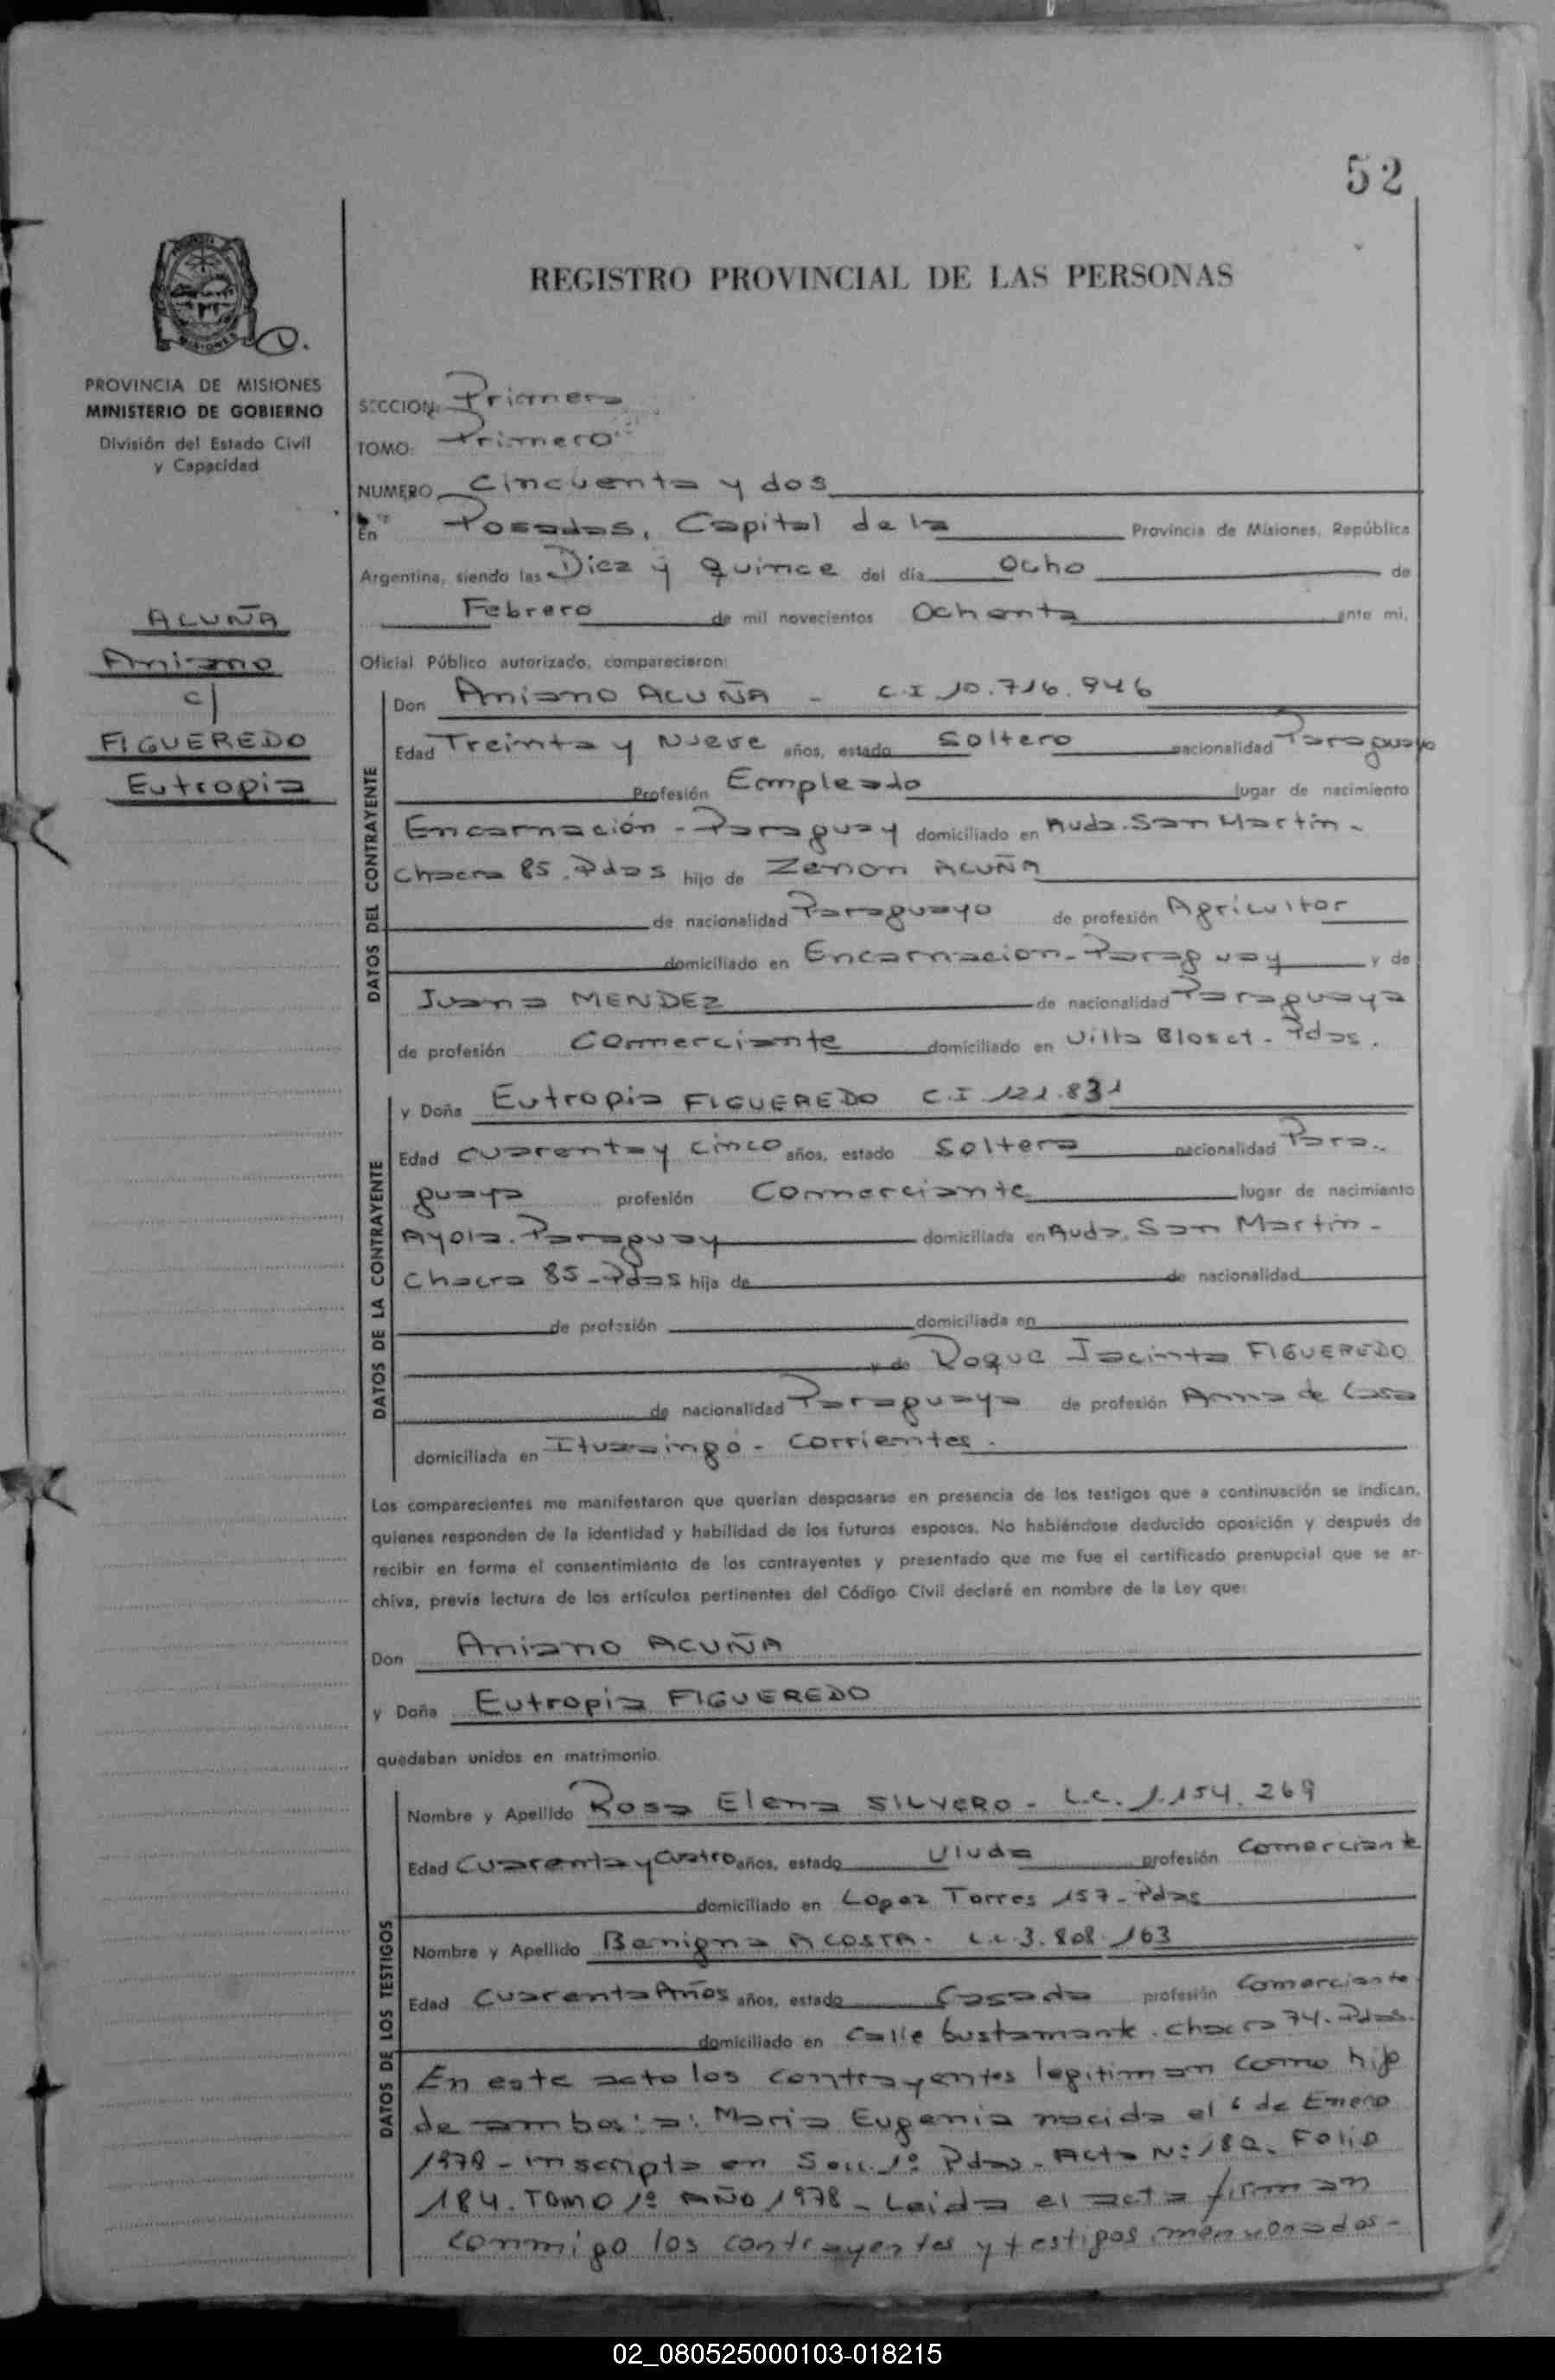 52
REGISTRO PROVINCIAL DE LAS PERSONAS
MISIONES
PROVINCIA DE MISIONES
MINISTERIO DE GOBIERNO
División del Estado Civil
y Capacidad
ACUÑA
Aniano
c/
FIGUEREDO
Eutropia
SECCION: Primera
TOMO: Primero
NUMERO Cincuenta y dos
En Posadas, Capital de la Provincia de Misiones, República
Argentina, siendo las Diez y quince del día Ocho de
Febrero de mil novecientos Ochenta ante mi,
Oficial Público autorizado, comparecieron:
DATOS DEL CONTRAYENTE
Don Aniano ACUÑA - C.I 10.716.946
Edad Treinta y Nueve años, estado Soltero nacionalidad Paraguayo
Profesión Empleado lugar de nacimiento
Encarnación - Paraguay domiciliado en Avda. San Martín -
Chacra 85. Pdas hijo de Zenon ACUÑA
de nacionalidad Paraguayo de profesión Agricultor
domiciliado en Encarnacion - Paraguay y de
Juana MENDEZ de nacionalidad Paraguaya
de profesión Comerciante domiciliado en Villa Bloset - Pdas.
DATOS DE LA CONTRAYENTE
y Doña Eutropia FIGUEREDO C.I. 121.831
Edad Cuarenta y cinco años, estado Soltera nacionalidad Para-
guaya profesión Comerciante lugar de nacimiento
Ayola. Paraguay domiciliada en Avda. San Martín -
Chacra 85 - Pdas hija de de nacionalidad
de profesión domiciliada en
y de Roque Jacinta FIGUEREDO
de nacionalidad Paraguaya de profesión Ama de Casa
domiciliada en Ituzaingó - Corrientes.
Los comparecientes me manifestaron que querían desposarse en presencia de los testigos que a continuación se indican,
quienes responden de la identidad y habilidad de los futuros esposos. No habiéndose deducido oposición y después de
recibir en forma el consentimiento de los contrayentes y presentado que me fue el certificado prenupcial que se ar-
chiva, previa lectura de los artículos pertinentes del Código Civil declaré en nombre de la Ley que:
Don Aniano ACUÑA
y Doña Eutropia FIGUEREDO
quedaban unidos en matrimonio.
DATOS DE LOS TESTIGOS
Nombre y Apellido Rosa Elena SILVERO - L.C. 1.154.269
Edad Cuarenta y cuatro años, estado Viuda profesión Comerciante
domiciliado en Lopez Torres 157 - Pdas
Nombre y Apellido Benigna ACOSTA - L.C. 3.808.163
Edad Cuarenta Años años, estado Casada profesión Comerciante
domiciliado en Calle bustamante. chacra 74. Pdas.
En este acto los contrayentes legitiman como hija
de ambos: a: Maria Eugenia nacida el 6 de Enero
1978 - inscripta en Secc. 1º Pdas - Acta Nº 182. Folio
184. Tomo 1º AÑO 1978 - Leida el acta firman
conmigo los contrayentes y testigos mencionados -
02_080525000103-018215